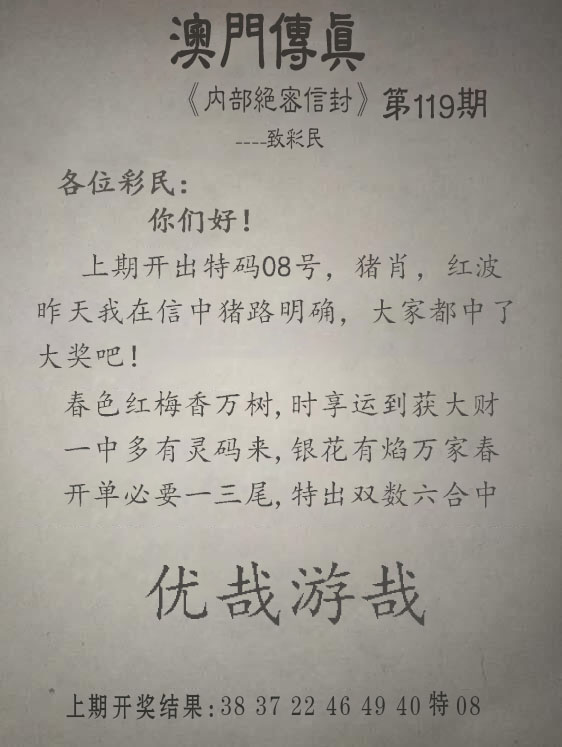 澳門傳真
《内部絕密信封》第119期
----致彩民
各位彩民:
你们好!
上期开出特码08号，猪肖，红波
昨天我在信中猪路明确，大家都中了
大奖吧!
春色红梅香万树,时享运到获大财
一中多有灵码来,银花有焰万家春
开单必要一三尾,特出双数六合中
优哉游哉
上期开奖结果:38 37 22 46 49 40 特 08